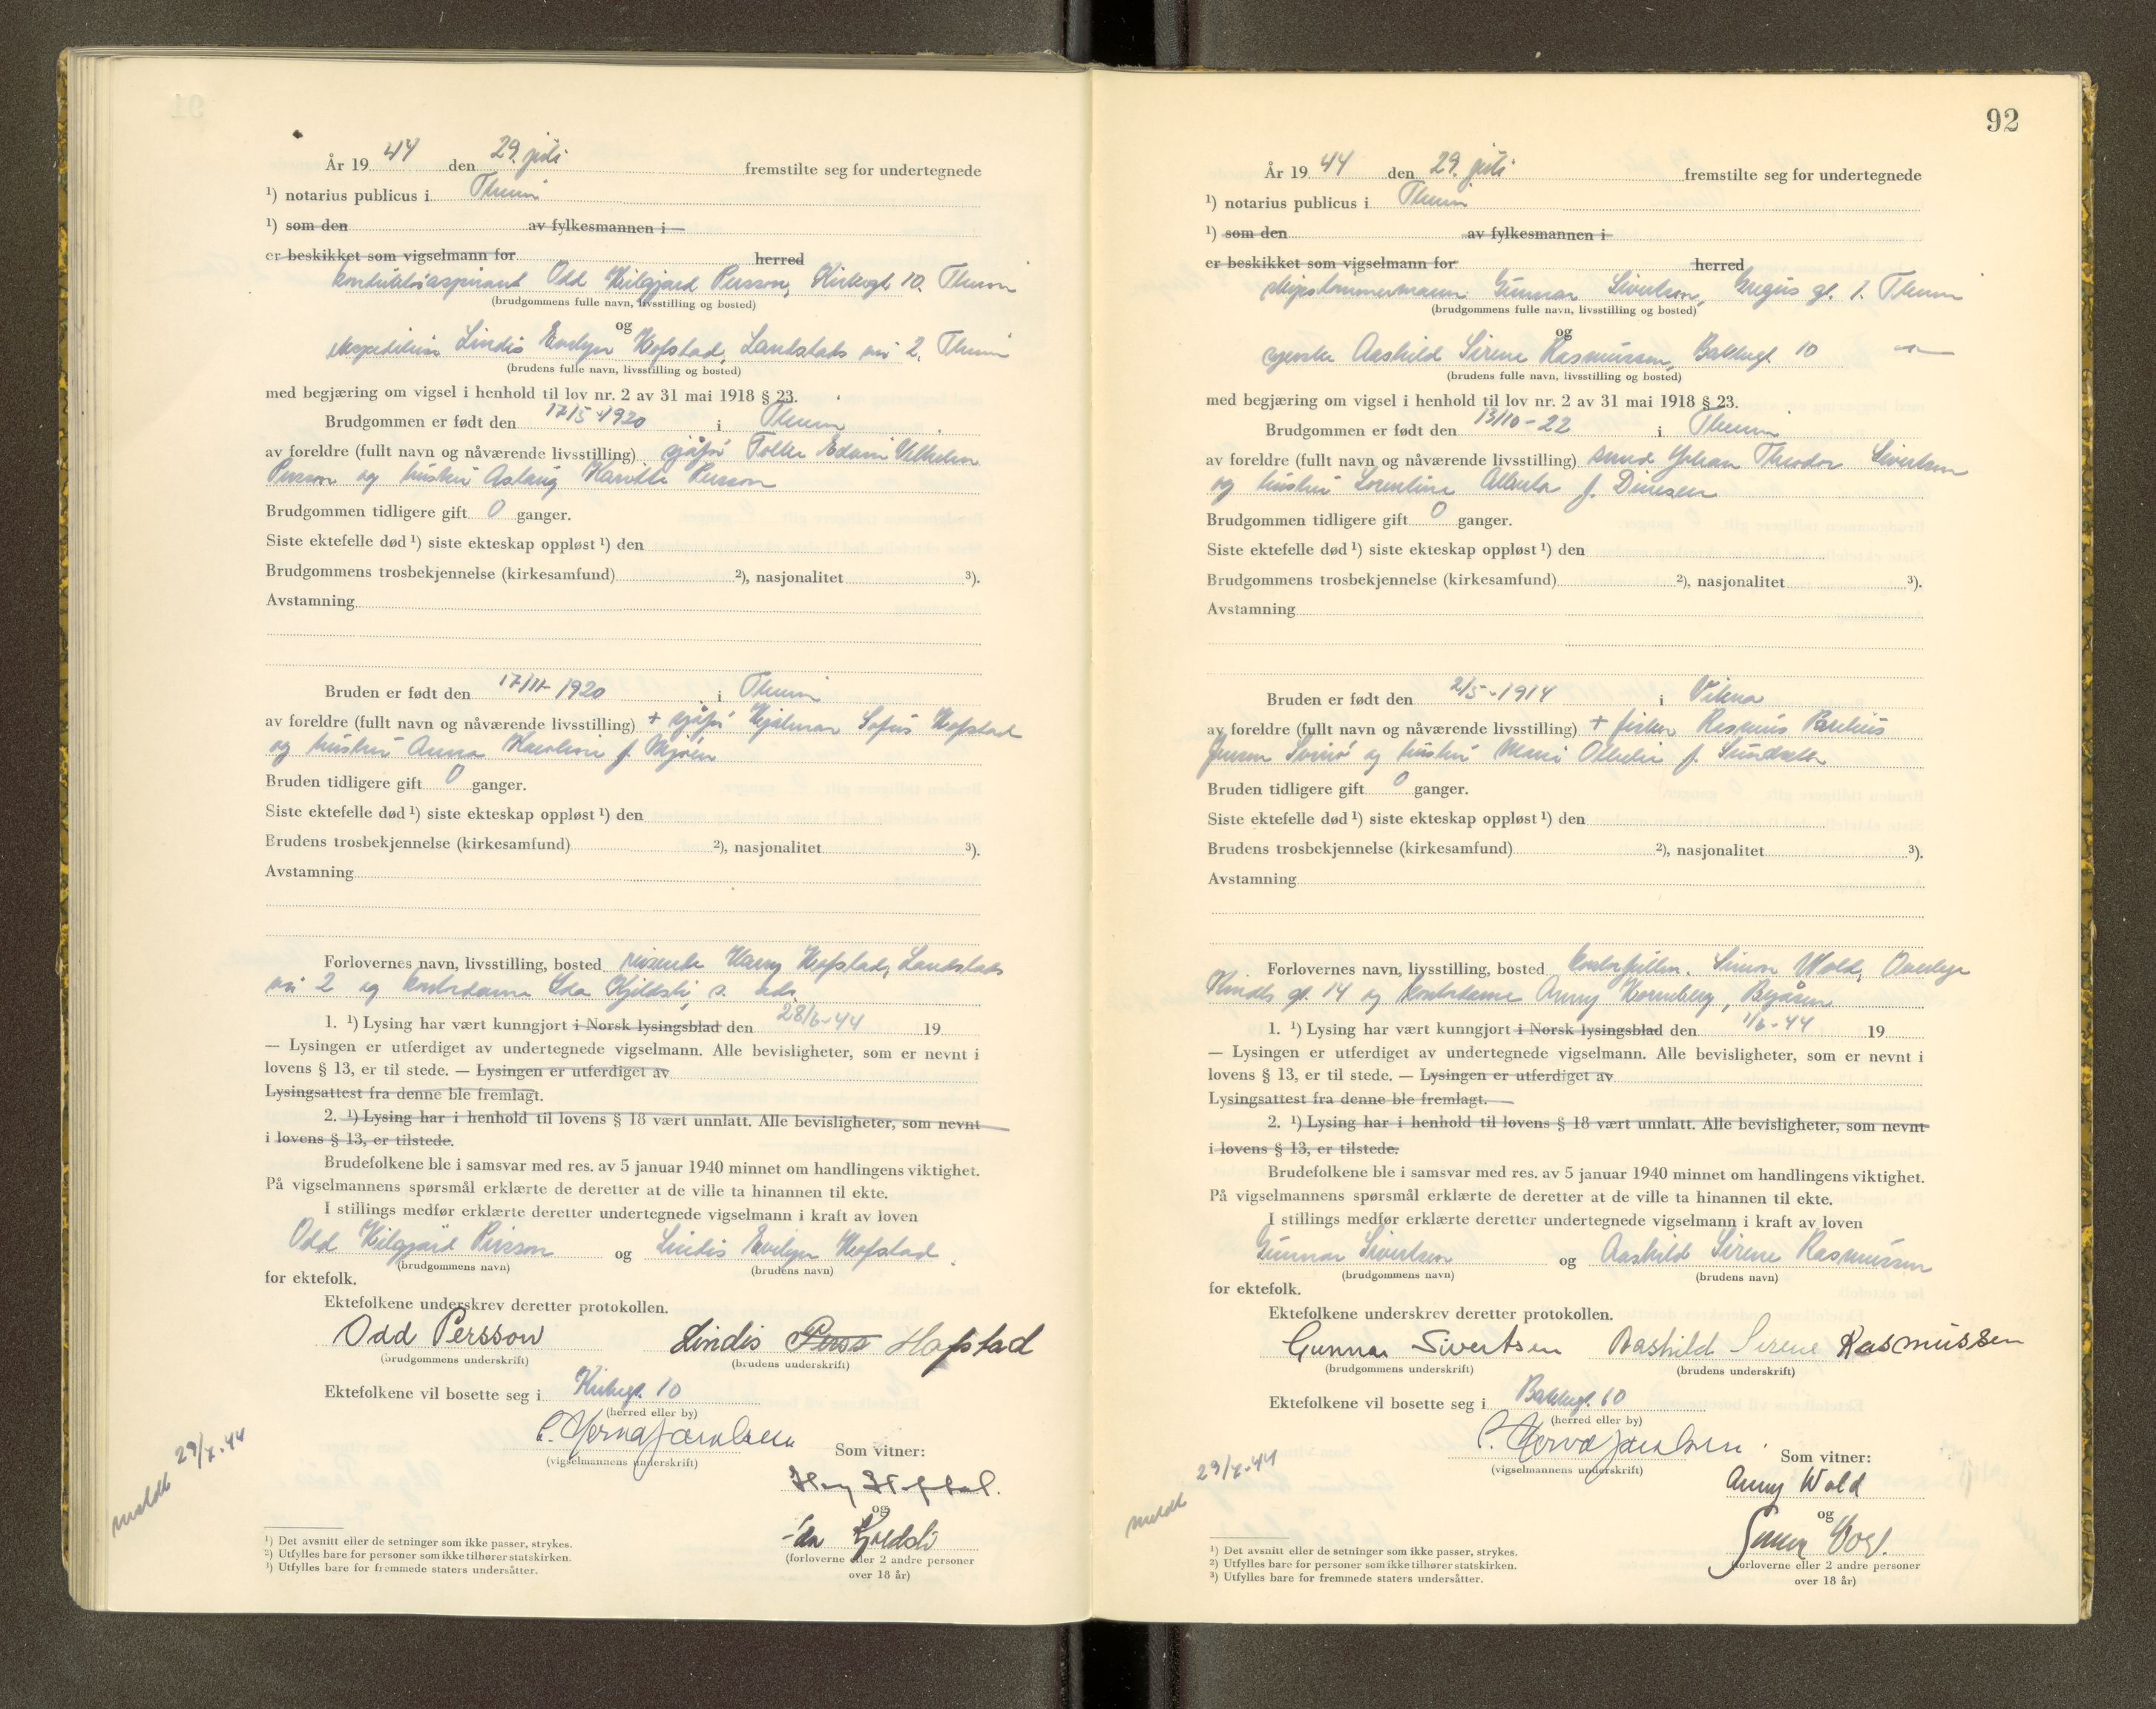 År 19 44 den 29. juli fremstilte seg for undertegnede
¹) notarius publicus i Theim
¹) som den av fylkesmannen i
er beskikket som vigselmann for herred
Odd Persson, Kirkegt 10. Theim
(brudgommens fulle navn, livsstilling og bosted)
og
Lindis Evelyn Hofstad, Landstads vei 2, Theim
(brudens fulle navn, livsstilling og bosted)
med begjæring om vigsel i henhold til lov nr. 2 av 31 mai 1918 § 23.
Brudgommen er født den 17/5-1920 i Theim
av foreldre (fullt navn og nåværende livsstilling) sjåfør Edvin Vilhelm
Persson og hustru Aslaug Persson
Brudgommen tidligere gift 0 ganger.
Siste ektefelle død ¹) siste ekteskap oppløst ¹) den
Brudgommens trosbekjennelse (kirkesamfund) ²), nasjonalitet ³).
Avstamning
Bruden er født den 17/11-1920 i Theim
av foreldre (fullt navn og nåværende livsstilling) + sjåfør Hjalmar Sofus Hofstad
og hustru Anna f. Mjøen
Bruden tidligere gift 0 ganger.
Siste ektefelle død ¹) siste ekteskap oppløst ¹) den
Brudens trosbekjennelse (kirkesamfund) ²), nasjonalitet ³).
Avstamning
Forlovernes navn, livsstilling, bosted reisende Harry Hofstad, Landstads
vei 2 og kontordame Ida s. sds.
1. ¹) Lysing har vært kunngjort i Norsk lysingsblad den 28/6-44 19
— Lysingen er utferdiget av undertegnede vigselmann. Alle bevisligheter, som er nevnt i
lovens § 13, er til stede. — Lysingen er utferdiget av
Lysingsattest fra denne ble fremlagt.
2. ¹) Lysing har i henhold til lovens § 18 vært unnlatt. Alle bevisligheter, som nevnt
i lovens § 13, er tilstede.
Brudefolkene ble i samsvar med res. av 5 januar 1940 minnet om handlingens viktighet.
På vigselmannens spørsmål erklærte de deretter at de ville ta hinannen til ekte.
I stillings medfør erklærte deretter undertegnede vigselmann i kraft av loven
Odd Persson og Lindis Evelyn Hofstad
(brudgommens navn) (brudens navn)
for ektefolk.
Ektefolkene underskrev deretter protokollen.
Odd Persson Lindis Perss Hofstad
(brudgommens underskrift) (brudens underskrift)
Ektefolkene vil bosette seg i Kirkegt. 10
(herred eller by)
(vigselmannens underskrift)
Som vitner:
og
Ida
(forloverne eller 2 andre personer
over 18 år)
meldt 29/7-44
¹) Det avsnitt eller de setninger som ikke passer, strykes.
²) Utfylles bare for personer som ikke tilhører statskirken.
³) Utfylles bare for fremmede staters undersåtter.
92
År 19 44 den 29. juli fremstilte seg for undertegnede
¹) notarius publicus i Theim
¹) som den av fylkesmannen i
er beskikket som vigselmann for herred
skipstømmermann Gunnar Sivertsen, gt. 1. Theim
(brudgommens fulle navn, livsstilling og bosted)
og
Aashild Sirene Rasmussen, Bakkegt. 10
(brudens fulle navn, livsstilling og bosted)
med begjæring om vigsel i henhold til lov nr. 2 av 31 mai 1918 § 23.
Brudgommen er født den 13/10-22 i Theim
av foreldre (fullt navn og nåværende livsstilling) Johan Theodor Sivertsen
og hustru Lorentine Alberta f. Dinesen
Brudgommen tidligere gift 0 ganger.
Siste ektefelle død ¹) siste ekteskap oppløst ¹) den
Brudgommens trosbekjennelse (kirkesamfund) ²), nasjonalitet ³).
Avstamning
Bruden er født den 2/5-1914 i Vikna
av foreldre (fullt navn og nåværende livsstilling) + fisker Rasmus
Jensen og hustru f.
Bruden tidligere gift 0 ganger.
Siste ektefelle død ¹) siste ekteskap oppløst ¹) den
Brudens trosbekjennelse (kirkesamfund) ²), nasjonalitet ³).
Avstamning
Forlovernes navn, livsstilling, bosted Simon Wold,
gt. 14 og kontordame Anny Hornberg, Byåsen
1. ¹) Lysing har vært kunngjort i Norsk lysingsblad den 1/6-44 19
— Lysingen er utferdiget av undertegnede vigselmann. Alle bevisligheter, som er nevnt i
lovens § 13, er til stede. — Lysingen er utferdiget av
Lysingsattest fra denne ble fremlagt.
2. ¹) Lysing har i henhold til lovens § 18 vært unnlatt. Alle bevisligheter, som nevnt
i lovens § 13, er tilstede.
Brudefolkene ble i samsvar med res. av 5 januar 1940 minnet om handlingens viktighet.
På vigselmannens spørsmål erklærte de deretter at de ville ta hinannen til ekte.
I stillings medfør erklærte deretter undertegnede vigselmann i kraft av loven
Gunnar Sivertsen og Aashild Sirene Rasmussen
(brudgommens navn) (brudens navn)
for ektefolk.
Ektefolkene underskrev deretter protokollen.
Gunnar Sivertsen Aashild Sirene Rasmussen
(brudgommens underskrift) (brudens underskrift)
Ektefolkene vil bosette seg i Bakkegt. 10
(herred eller by)
(vigselmannens underskrift)
Som vitner:
Anny Wold
og
Simon Wold.
(forloverne eller 2 andre personer
over 18 år)
meldt 29/7-44
¹) Det avsnitt eller de setninger som ikke passer, strykes.
²) Utfylles bare for personer som ikke tilhører statskirken.
³) Utfylles bare for fremmede staters undersåtter.